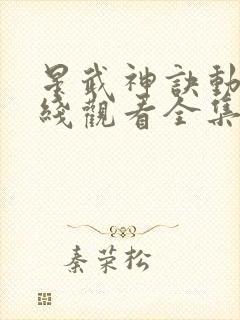 星武神訣動
綫觀看全集
秦荣松